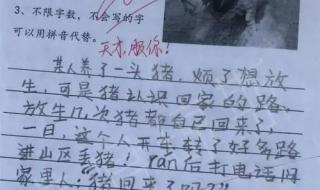 3、不限字数，不会写的字
可以用拼音代替。
天才，服你！
某人养了一头猪，烦了想放
生，可是猪认识回家的路，
放生几次猪都自己回来了，
一日，这个人开车转了好多路
进山区丢猪！ran后打电话问
家里人："猪回来了吗？"